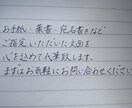 お手紙・葉書・宛名書きなど
ご指定いただいた文面を
心を込めて代筆致します。
まずはお気軽にお問い合わせください